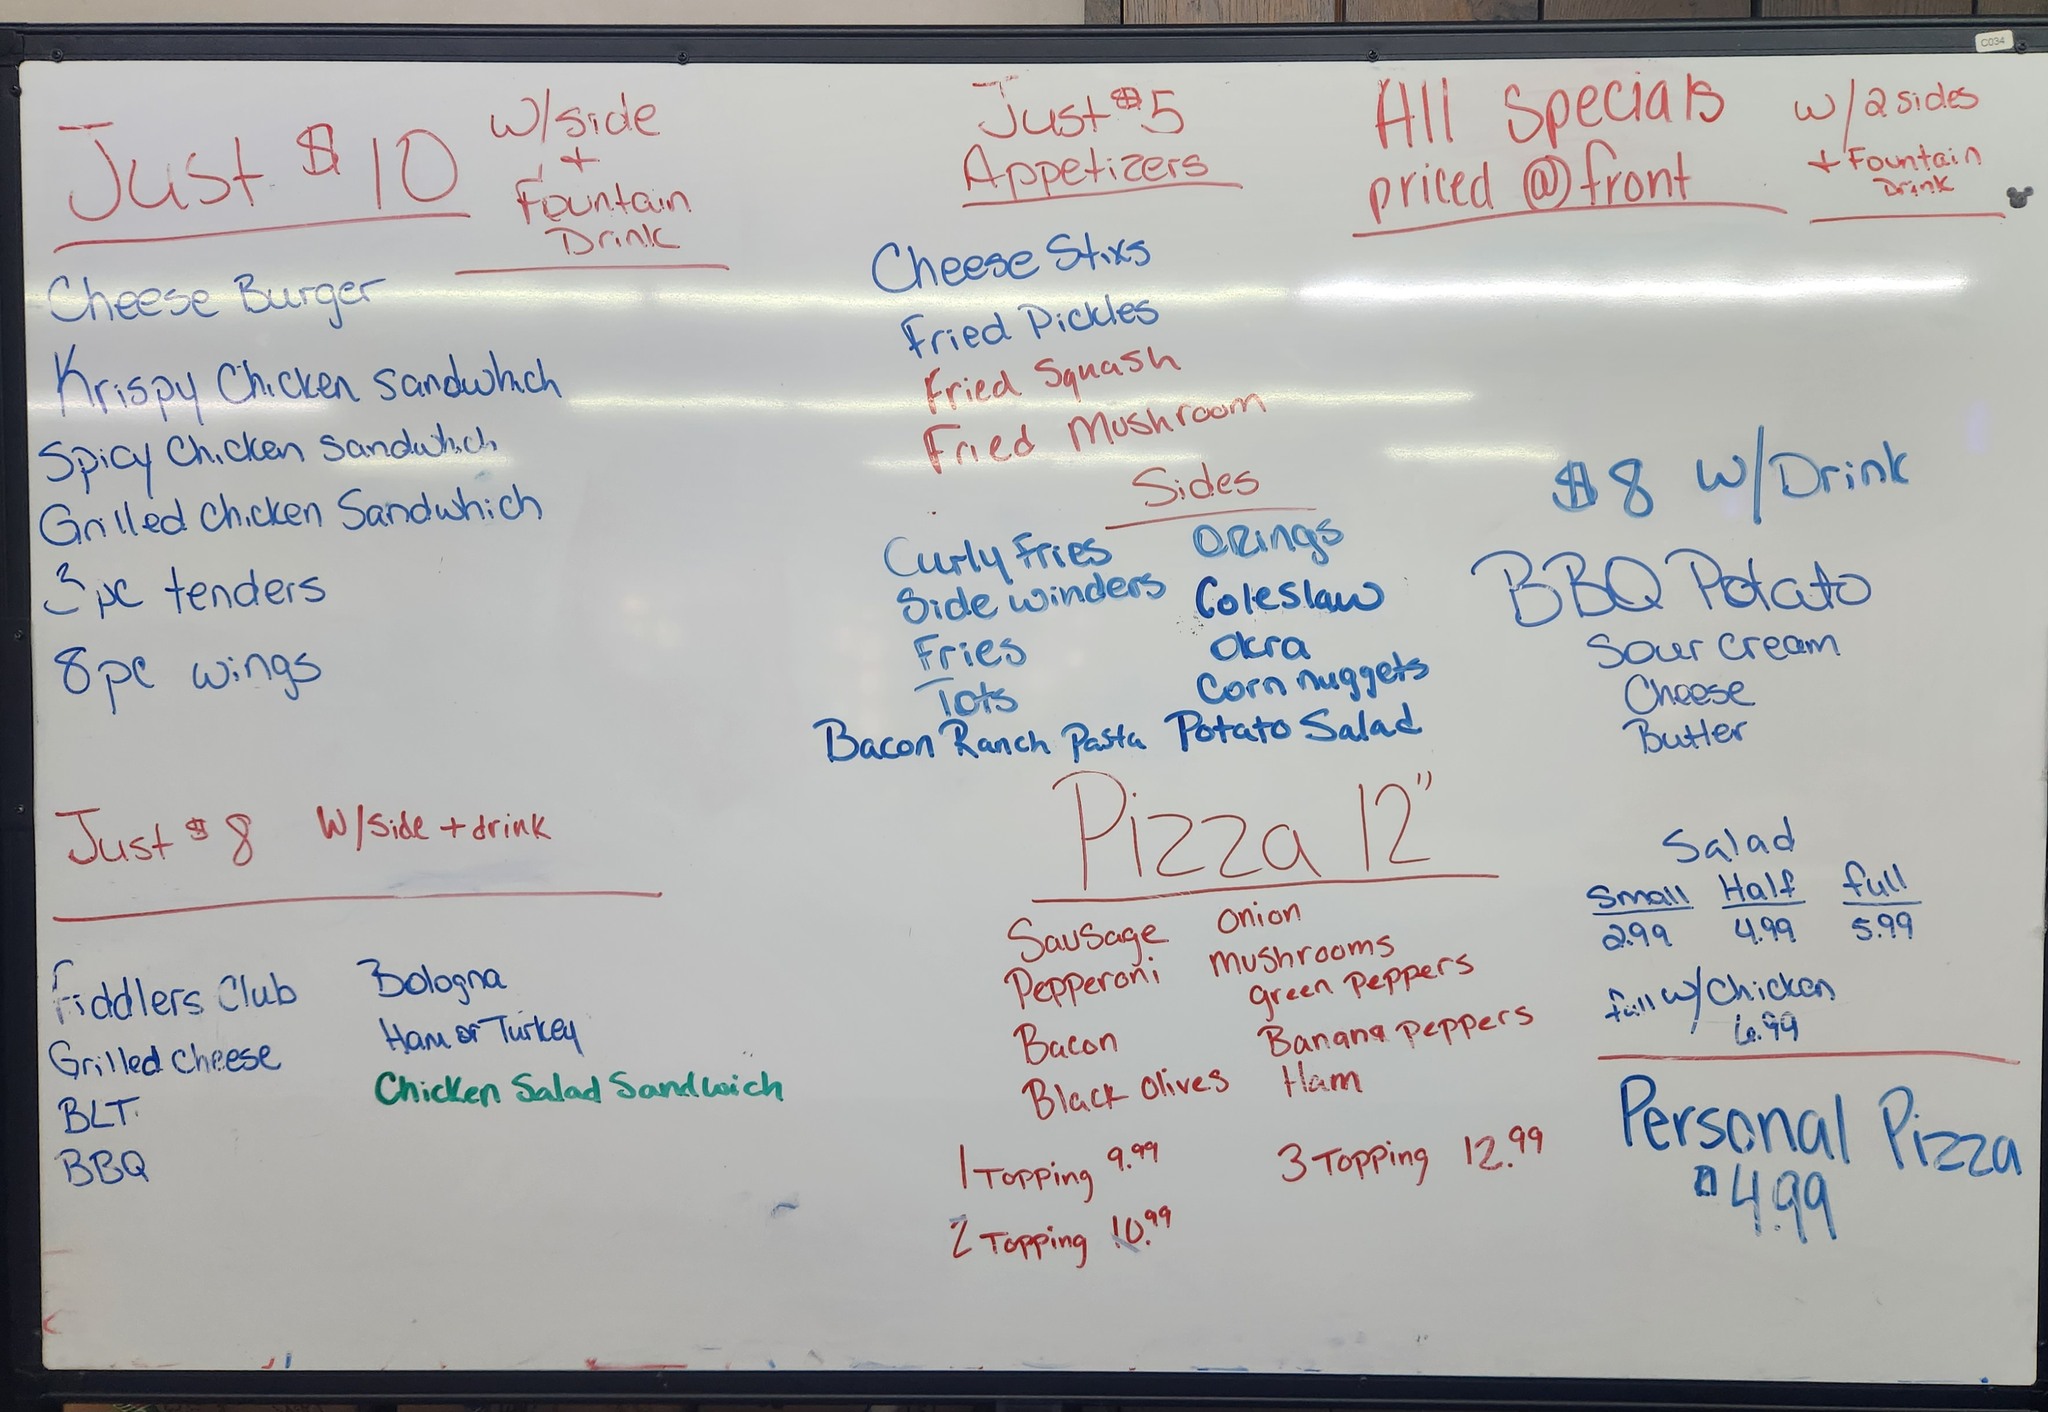 C034
Just $10
w/side
+
Fountain
Drink
Cheese Burger
Krispy Chicken Sandwhich
Spicy Chicken Sandwhich
Grilled Chicken Sandwhich
3 pc tenders
8 pc wings
Just $8 w/side + drink
Fiddlers Club
Grilled Cheese
BLT
BBQ
Bologna
Ham or Turkey
Chicken Salad Sandwich
Just $5
Appetizers
Cheese Stixs
Fried Pickles
Fried Squash
Fried Mushroom
Sides
Curly Fries
Side winders
Fries
Tots
Bacon Ranch Pasta
ORings
Coleslaw
Okra
Corn nuggets
Potato Salad
Pizza 12"
Sausage
Pepperoni
Bacon
Black Olives
Onion
Mushrooms
green Peppers
Banana Peppers
Ham
1 Topping 9.99
2 Topping 10.99
3 Topping 12.99
All Specials
priced @ front
w/2 sides
+ Fountain
Drink
$8 w/Drink
BBQ Potato
Sour Cream
Cheese
Butter
Salad
Small Half full
2.99 4.99 5.99
full w/Chicken
6.99
Personal Pizza
$4.99